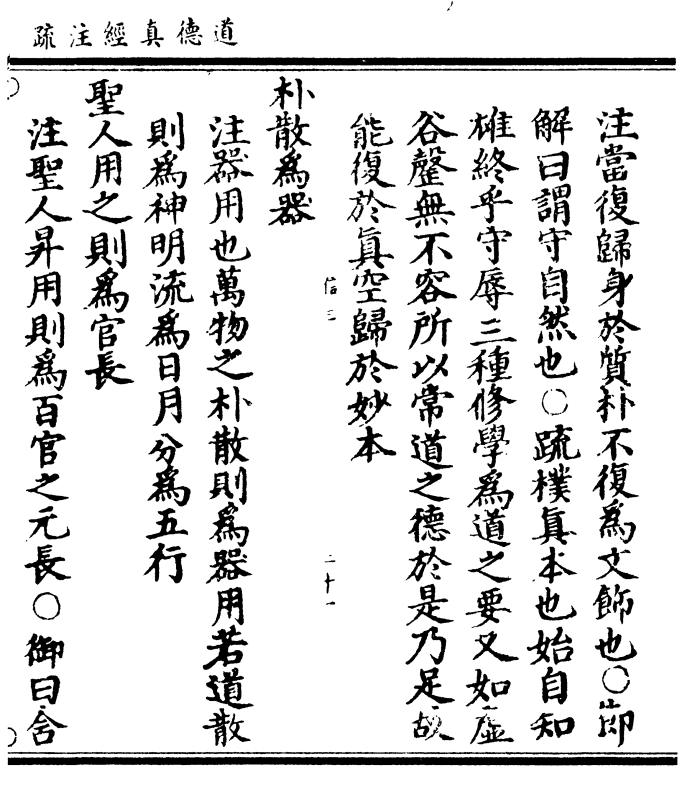 道德真經注疏
注當復歸身於質朴不復為文飾也〇節
解曰謂守自然也〇疏樸真本也始自知
雄終乎守辱三種修學為道之要又如虛
谷聲無不容所以常道之德於是乃足故
能復於真空歸於妙本
信三
二十一
朴散為器
注器用也萬物之朴散則為器用若道散
則為神明流為日月分為五行
聖人用之則為官長
注聖人昇用則為百官之元長〇御曰含